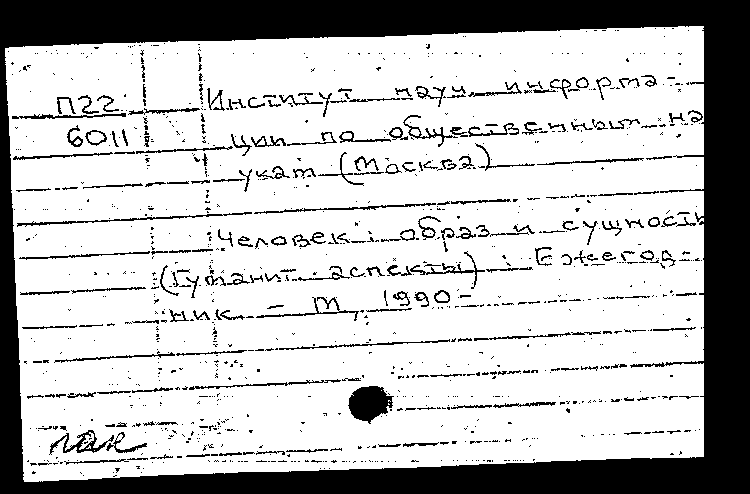 П22 Институт науч. информа-
6011 ции по общественным на
укам (Москва)
Человек: образ и сущность
(Гуманит. аспекты): Ежегод-
ник. - М., 1990-